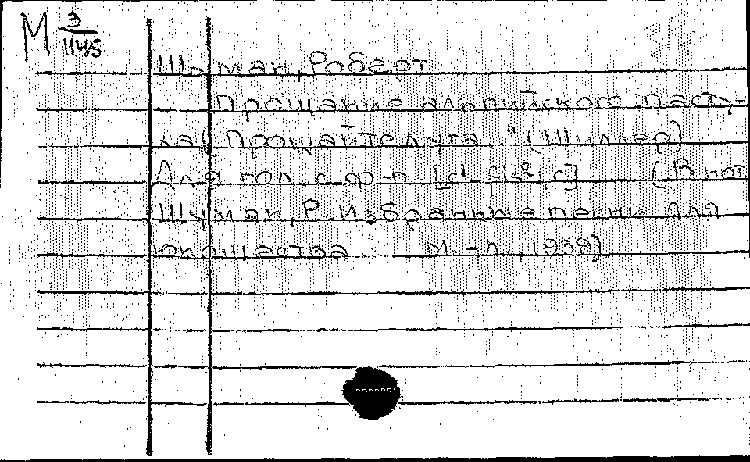 М 3/1145
Шуман, Роберт
Прощание альпийского пасту-
ха („Прощайте луга..." (Шиллер)
Для гол. с ф-п. [c¹-
Шуман, Р. Избранные песни для
юношества М.-Л., 1938)